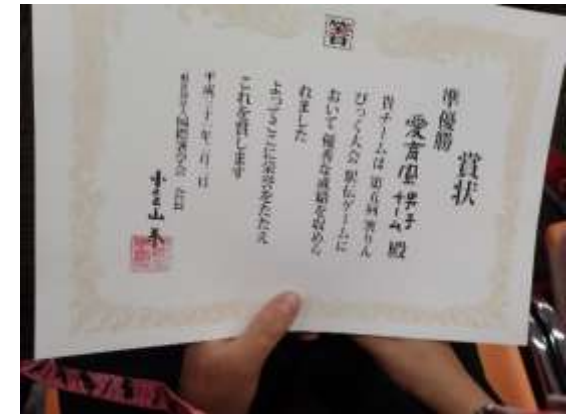 箸
賞状
準優勝
愛育園男子チーム 殿
貴チームは 第五回 箸りん
ぴっく大会 駅伝ゲームに
おいて 優秀な成績を収めら
れました
よってここに栄誉をたたえ
これを賞します
国際箸学会 会長